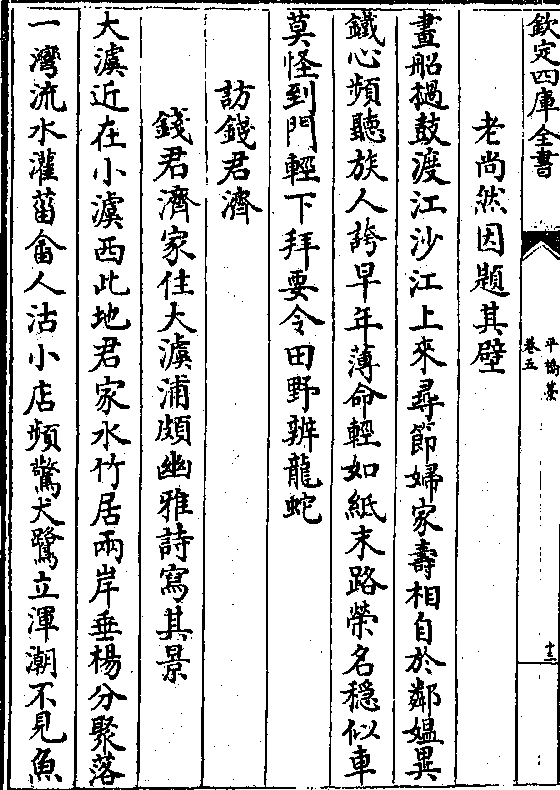 欽定四庫全書
平橋藁
卷五
十三
老尚然因題其壁
畫船撾鼓渡江沙江上來尋節婦家壽相自於鄰媼異
鐵心頻聽族人誇早年薄命輕如紙末路榮名穩似車
莫怪到門輕下拜要令田野辨龍蛇
訪錢君濟
錢君濟家住大澞浦頗幽雅詩寫其景
大澞近在小澞西此地君家水竹居兩岸垂楊分聚落
一灣流水灌菑畬人沽小店頻驚犬鷺立渾潮不見魚